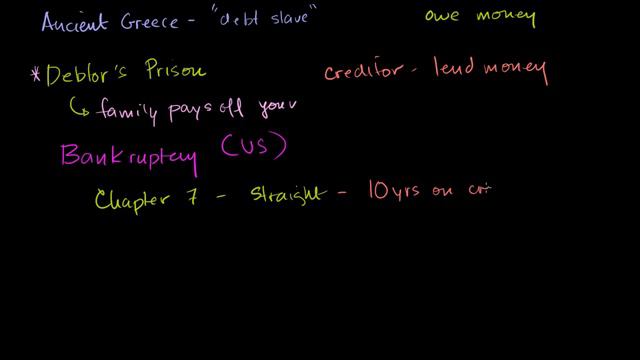 Ancient Greece - "debt slave" owe money
*Debtor's Prison creditor - lend money
family pays off your
Bankruptcy (US)
Chapter 7 - straight - 10 yrs on cri